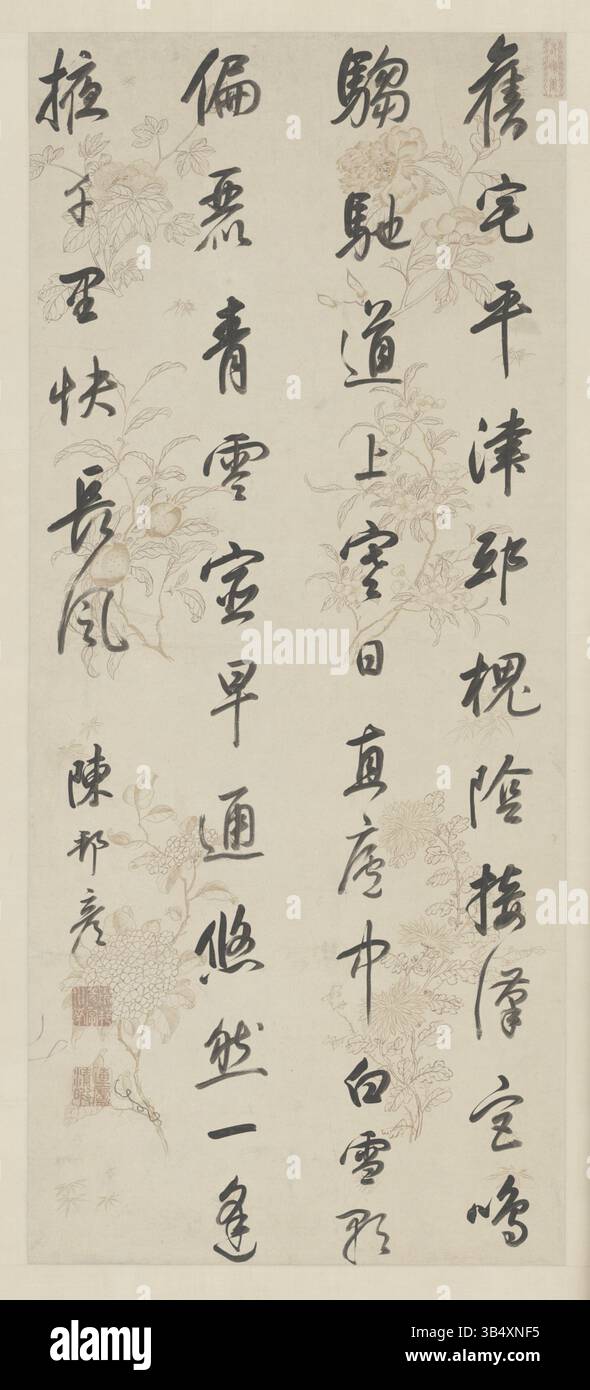 舊宅平津邸槐陰接漢宮鳴
騶馳道上寒日直廬中白雪歌
偏麗青雲宦早通悠然一逢
掖千里快長風
陳邦彥
alamy
alamy
Image ID: 3B4XNF5
www.alamy.com